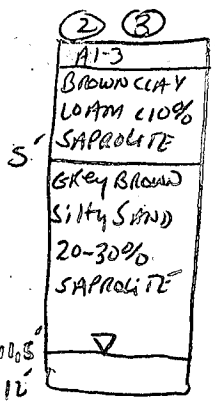 2 3
A1-3
BROWN CLAY
LOAM <10%
SAPROLITE
5'
GREY BROWN
SILTY SAND
20-30%
SAPROLITE
11.5'
12'